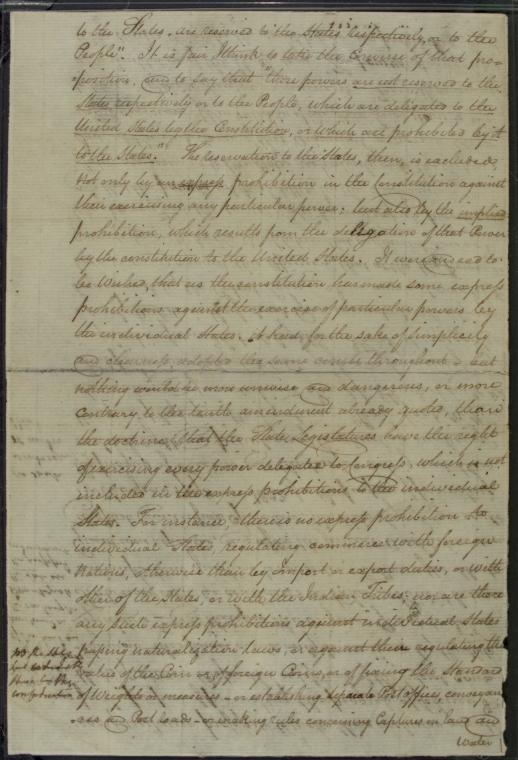 to the States, are reserved to the States respectively, or to the
People". It is fair, I think to take the Converse of that pro-
position, and to say that "those powers are not reserved to the
States respectively or to the People, which are delegated to the
United States by the Constitution, or which are prohibited by it
to the States." The reservation to the States, then, is excluded
not only by an express prohibition in the Constitution against
their exercising any particular power; but also by the implied
prohibition, which results from the delegation of that Power
by the constitution to the United States. It were indeed to
be wished, that as the constitution has made some express
prohibitions against the exercise of particular powers by
the individual States, it had, for the sake of simplicity
and clearness, adopted the same course throughout - but
nothing would be more unwise and dangerous, or more
contrary to the tenth amendment already quoted, than
the doctrine that the State Legislatures have the right
of exercising every power delegated to Congress, which is not
included in the express prohibitions to the individual
States. For instance there is no express prohibition to
individual States, regulating commerce with foreign
nations, otherwise than by import or export duties, or with
other of the States, or with the Indian Tribes; nor are there
any such express prohibitions against individual States
passing naturalization laws, or against their regulating the
value of the Coin or of foreign Coins, or of fixing the Standard
of Weights or measures - or establishing separate Post offices, conveyan-
-ces and Post roads - or making rules concerning Captures on land and
Water